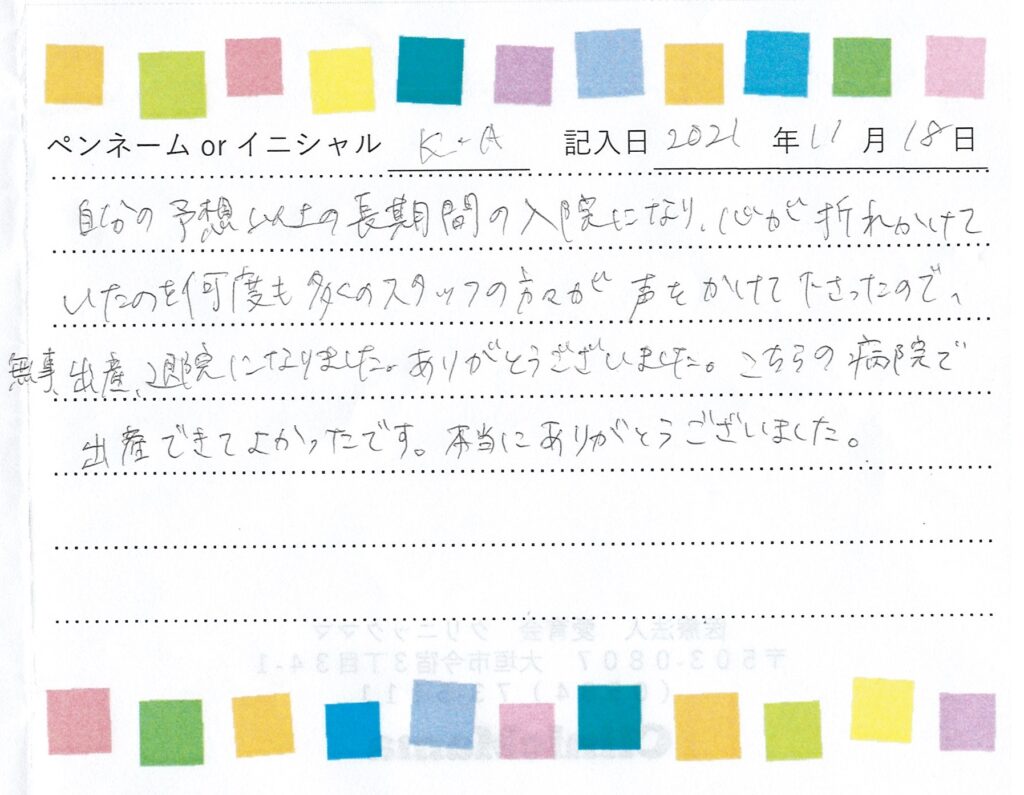 ペンネーム or イニシャル K-A 記入日 2021 年 11 月 18 日
自分の予想以上の長期間の入院になり、心が折れかけて
いたのを何度も多くのスタッフの方々が声をかけて下さったので、
無事、出産、退院になりました。ありがとうございました。こちらの病院で
出産できてよかったです。本当にありがとうございました。
医療法人 愛育会 クリニックママ
〒503-0807 大垣市今宿3丁目34-1